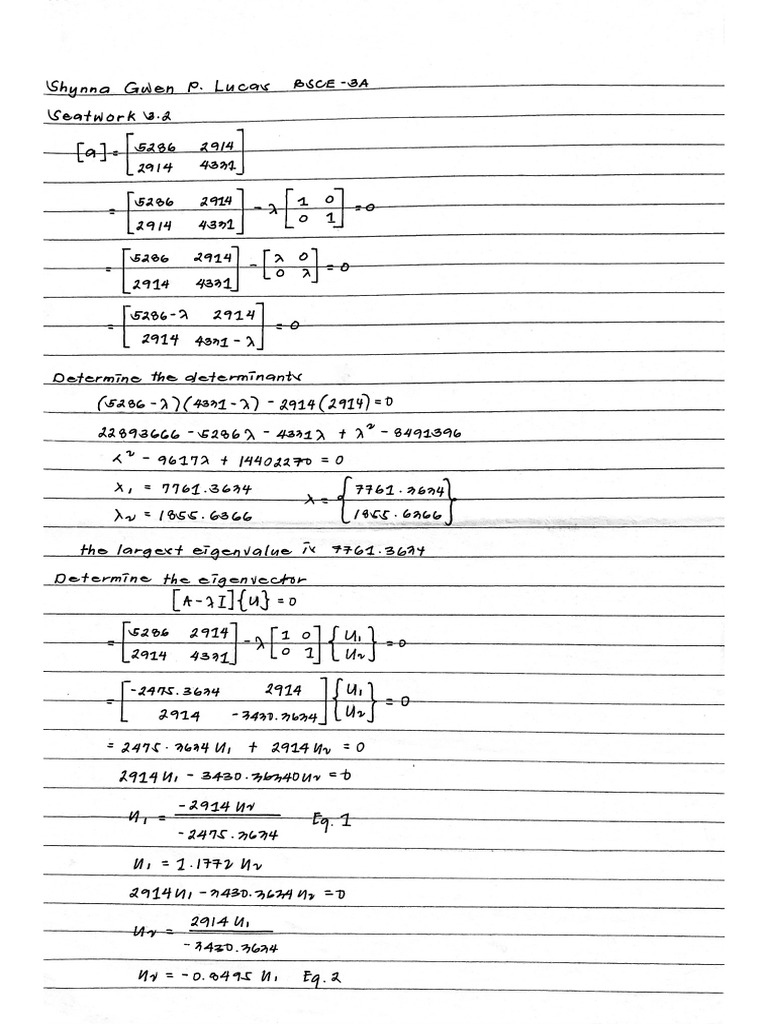 Shynna Gwen P. Lucas BSCE-3A
Seatwork 3.2
[a] = [5286 2914
2914 4331]
= [5286 2914
2914 4331] - λ [1 0
0 1] = 0
= [5286 2914
2914 4331] - [λ 0
0 λ] = 0
= [5286-λ 2914
2914 4331-λ] = 0
Determine the determinants
(5286-λ)(4331-λ) - 2914(2914) = 0
22893666 - 5286λ - 4331λ + λ² - 8491396
λ² - 9617λ + 14402270 = 0
λ₁ = 7761.3634 λ = {7761.3634
λ₂ = 1855.6366 1855.6366}
the largest eigenvalue is 7761.3634
Determine the eigenvector
[A-λI]{U} = 0
= [5286 2914
2914 4331] - λ [1 0
0 1] {U₁
U₂} = 0
= [-2475.3634 2914
2914 -3430.3634] {U₁
U₂} = 0
= 2475.3634 U₁ + 2914 U₂ = 0
2914 U₁ - 3430.3634 U₂ = 0
U₁ = -2914 U₂ / -2475.3634 Eq. 1
U₁ = 1.1772 U₂
2914 U₁ - 3430.3634 U₂ = 0
U₂ = 2914 U₁ / -3430.3634
U₂ = -0.8495 U₁ Eq. 2